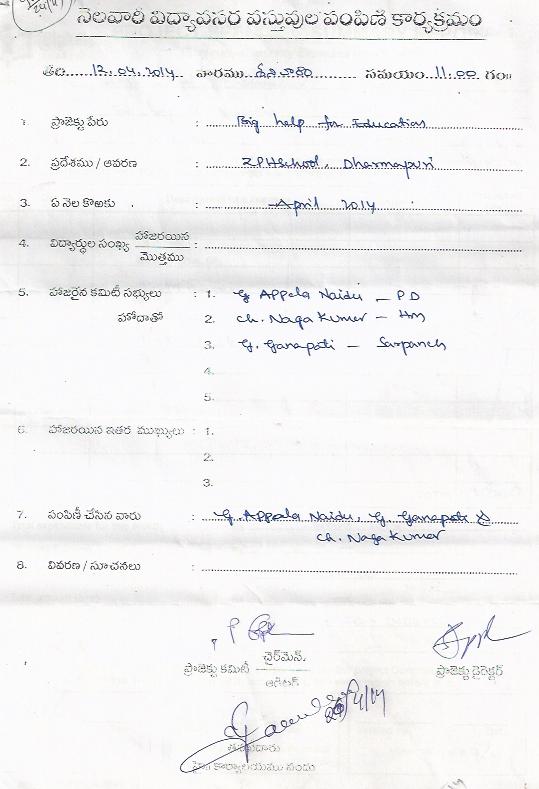 నెలవారీ విద్యావసర వస్తువుల పంపిణి కార్యక్రమం
తేది......12.04.2014..... వారము...శనివారం......... సమయం..11.00 గం॥
1. ప్రాజెక్టు పేరు : Big help for Education
2. ప్రదేశము / ఆవరణ : ZPHSchool, Dharmapuri
3. ఏ నెల కొఱకు : April 2014
4. విద్యార్థుల సంఖ్య హాజరయిన / మొత్తము :
5. హాజరైన కమిటీ సభ్యులు : 1. G Appala Naidu – PD
హోదాతో 2. Ch. Naga Kumar – HM
3. G. Ganapati – Sarpanch
4.
5.
6. హాజరయిన ఇతర ముఖ్యులు : 1.
2.
3.
7. పంపిణీ చేసిన వారు : G. Appala Naidu, G. Ganapati &
Ch. Naga Kumar
8. వివరణ / సూచనలు :
ప్రాజెక్టు కమిటీ ఛైర్‌మెన్.
ప్రాజెక్టు డైరెక్టర్
ప్రధాన కార్యాలయము నందు